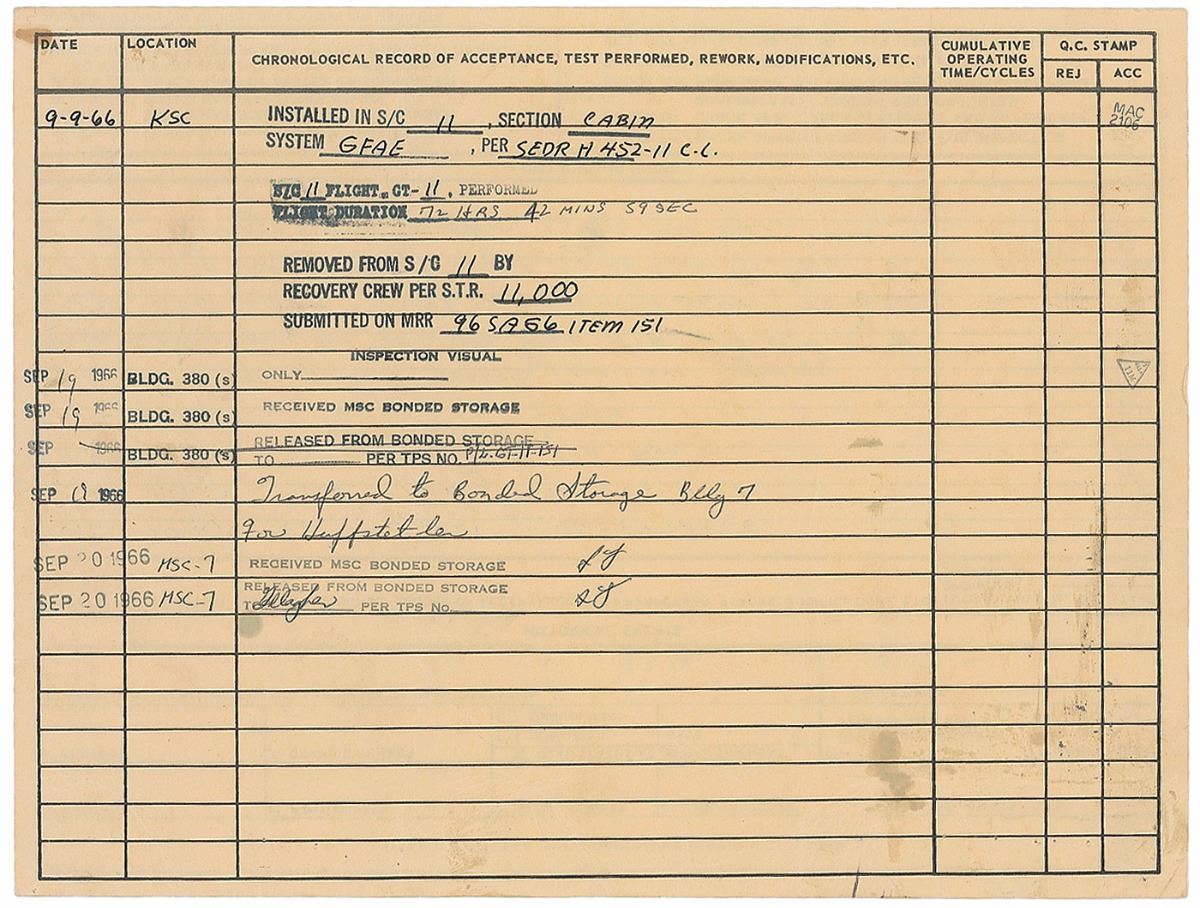 DATE LOCATION CHRONOLOGICAL RECORD OF ACCEPTANCE, TEST PERFORMED, REWORK, MODIFICATIONS, ETC. CUMULATIVE OPERATING TIME/CYCLES Q.C. STAMP
REJ ACC
9-9-66 KSC INSTALLED IN S/C 11, SECTION CABIN MAC 2106
SYSTEM GFAE, PER SEDR H 452-11 C.L.
S/C 11 FLIGHT, GT-11, PERFORMED
FLIGHT DURATION 72 HRS 42 MINS 59 SEC
REMOVED FROM S/C 11 BY
RECOVERY CREW PER S.T.R. 11,000
SUBMITTED ON MRR 96 SAG6 ITEM 151
INSPECTION VISUAL
SEP 19 1966 BLDG. 380 (s) ONLY
SEP 19 1966 BLDG. 380 (s) RECEIVED MSC BONDED STORAGE
RELEASED FROM BONDED STORAGE
SEP 1966 BLDG. 380 (s) TO PER TPS NO.
SEP 19 1966 Transferred to Bonded Storage Bldg 7
For Huffstetler
SEP 20 1966 MSC-7 RECEIVED MSC BONDED STORAGE
RELEASED FROM BONDED STORAGE
SEP 20 1966 MSC-7 TO Gallagher PER TPS No.